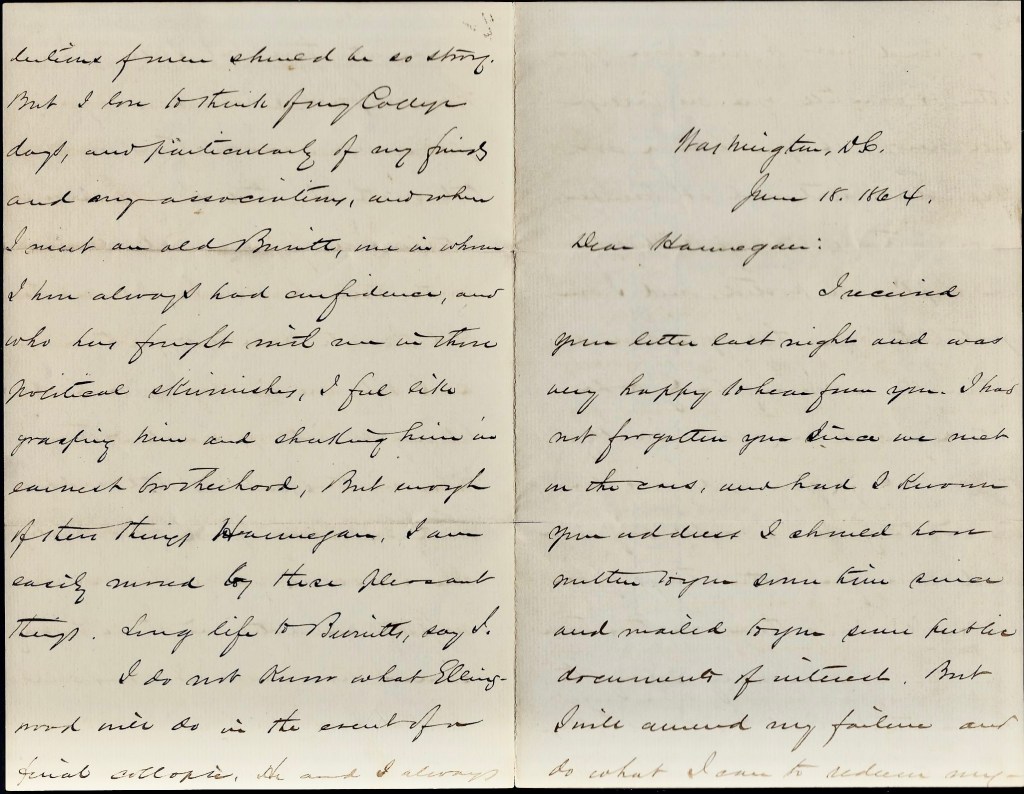 Washington, D.C.
June 18. 1864.
Dear Hannegan:
I received
your letter last night and was
very happy to hear from you. I had
not forgotten you since we met
in the cars, and had I known
your address I should have
written to you some time since
and mailed to you some public
documents of interest. But
I will amend my failure and
do what I can to redeem my-
of men should be so strong.
But I love to think of my College
days, and particularly of my friends
and my associations, and when
I meet an old Burritt, one in whom
I have always had confidence, and
who has fought with me in those
political skirmishes, I feel like
grasping him and shaking him in
earnest brotherhood, But enough
of these things Hannegan, I am
easily moved by these pleasant
things. Long life to Burritts, say I.
I do not know what Elling-
wood will do in the event of a
final collapse. He and I always